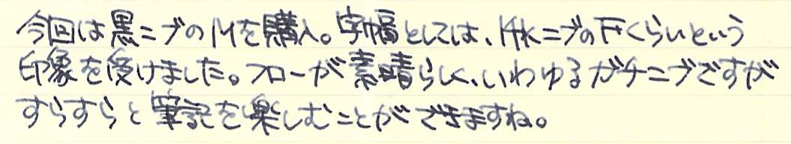 今回は黒ニブのMを購入。字幅としては、14kニブのFくらいという
印象を受けました。フローが素晴らしく、いわゆるガチニブですが
すらすらと筆記を楽しむことができますね。